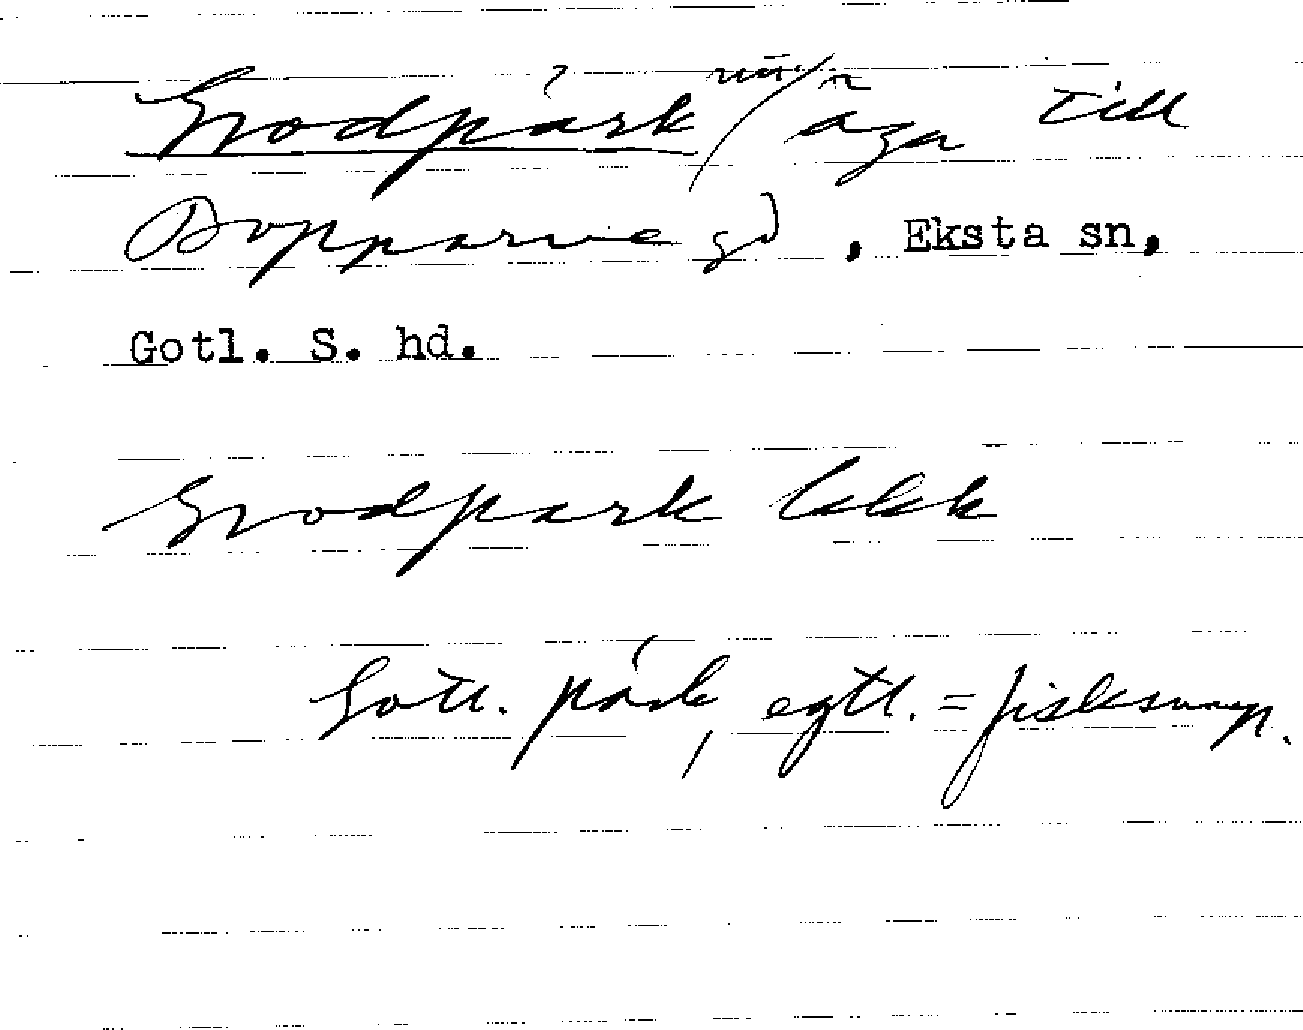 Grodpark äga till
Bopparve gd, Eksta sn,
Gotl. S. hd.
Grodpark lekk
Gotl. park, egtl. = fisksump.